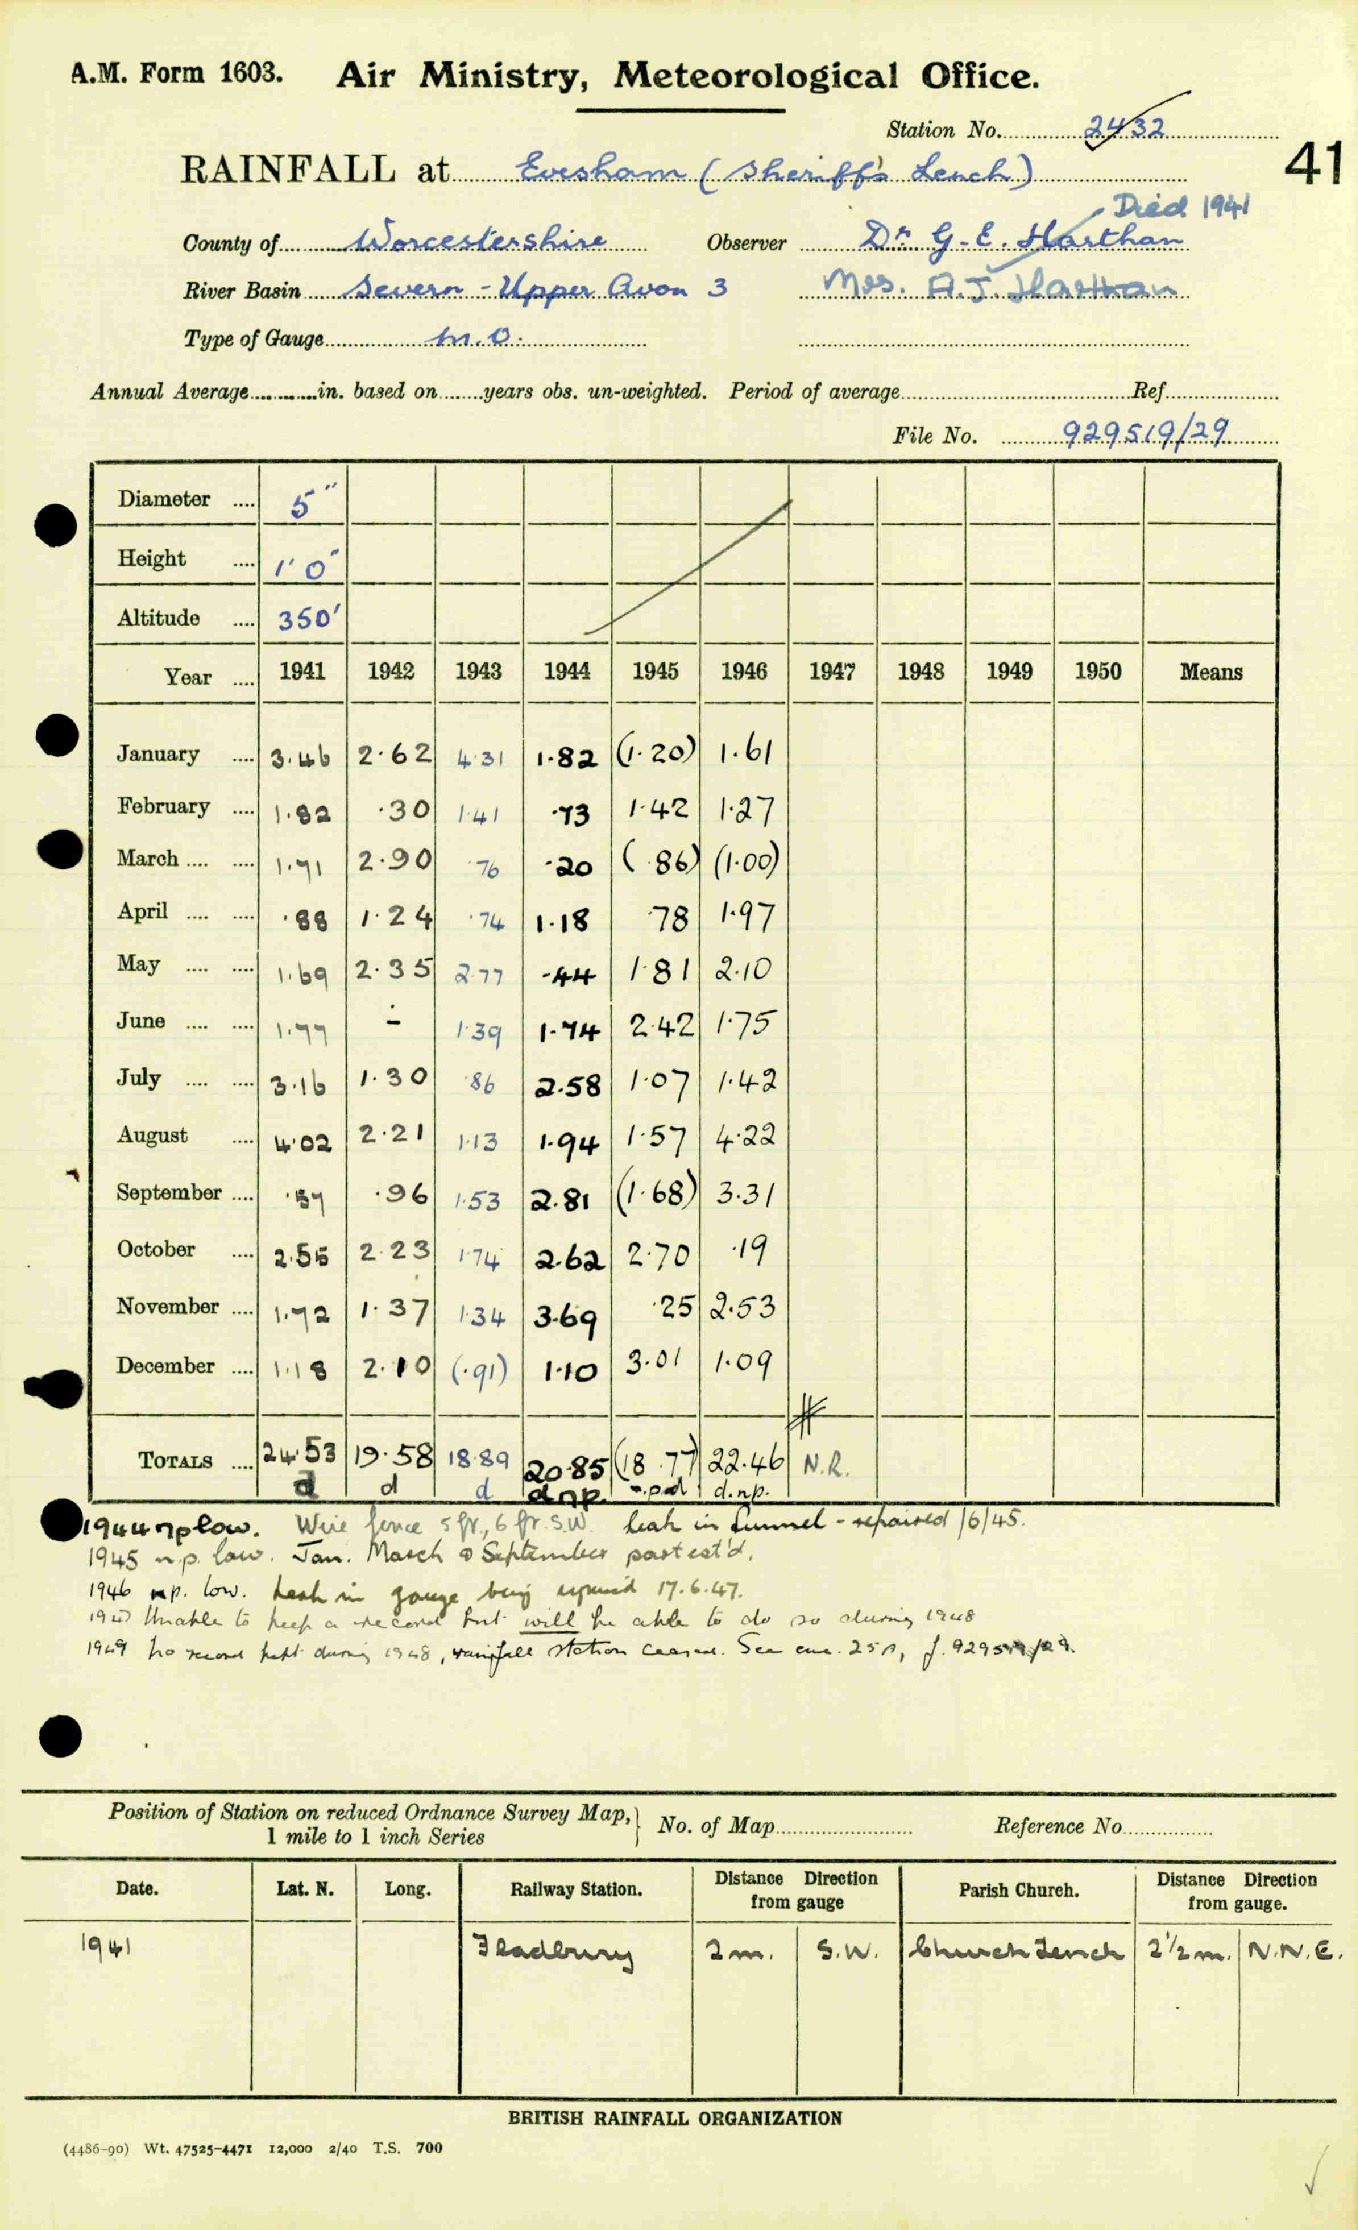 A.M. Form 1603. Air Ministry, Meteorological Office.
Station No. 2432
41
RAINFALL at Evesham (Sheriff's Lench)
Died 1941
County of Worcestershire Observer Dr G. E. Harthan
River Basin Severn - Upper Avon 3 Mrs. A. J. Harthan
Type of Gauge M.O.
Annual Average in. based on years obs. un-weighted. Period of average Ref
File No. 929519/29
Diameter .... 5"
Height .... 1' 0"
Altitude .... 350'
Year .... 1941 1942 1943 1944 1945 1946 1947 1948 1949 1950 Means
January .... 3.46 2.62 4.31 1.82 (1.20) 1.61
February .... 1.82 .30 1.41 .73 1.42 1.27
March .... .... 1.71 2.90 .76 .20 (.86) (1.00)
April .... .... .88 1.24 .74 1.18 .78 1.97
May .... .... 1.69 2.35 2.77 .44 1.81 2.10
June .... .... 1.77 - 1.39 1.74 2.42 1.75
July .... .... 3.16 1.30 .86 2.58 1.07 1.42
August .... 4.02 2.21 1.13 1.94 1.57 4.22
September .... .57 .96 1.53 2.81 (1.68) 3.31
October .... 2.55 2.23 1.74 2.62 2.70 .19
November .... 1.72 1.37 1.34 3.69 .25 2.53
December .... 1.18 2.10 (.91) 1.10 3.01 1.09
TOTALS .... 24.53 19.58 18.89 20.85 (18.77) 22.46 N.R.
d d d d np. n.p.d d.n.p.
1944 np low. Wire fence 5 ft., 6 ft. S.W. leak in funnel - repaired /6/45.
1945 n.p. low. Jan. March & September part est'd.
1946 n.p. low. Leak in gauge being repaired 17.6.47.
1947 Unable to keep a record but will be able to do so during 1948
1949 No record kept during 1948, rainfall station ceased. See enc. 25A, f. 929519/29.
Position of Station on reduced Ordnance Survey Map, } No. of Map Reference No
1 mile to 1 inch Series
Date. Lat. N. Long. Railway Station. Distance Direction from gauge Parish Church. Distance Direction from gauge.
1941 Fladbury 2 m. S.W. Church Lench 2 1/2 m. N.N.E.
BRITISH RAINFALL ORGANIZATION
(4486-90) Wt. 47525-4471 12,000 2/40 T.S. 700